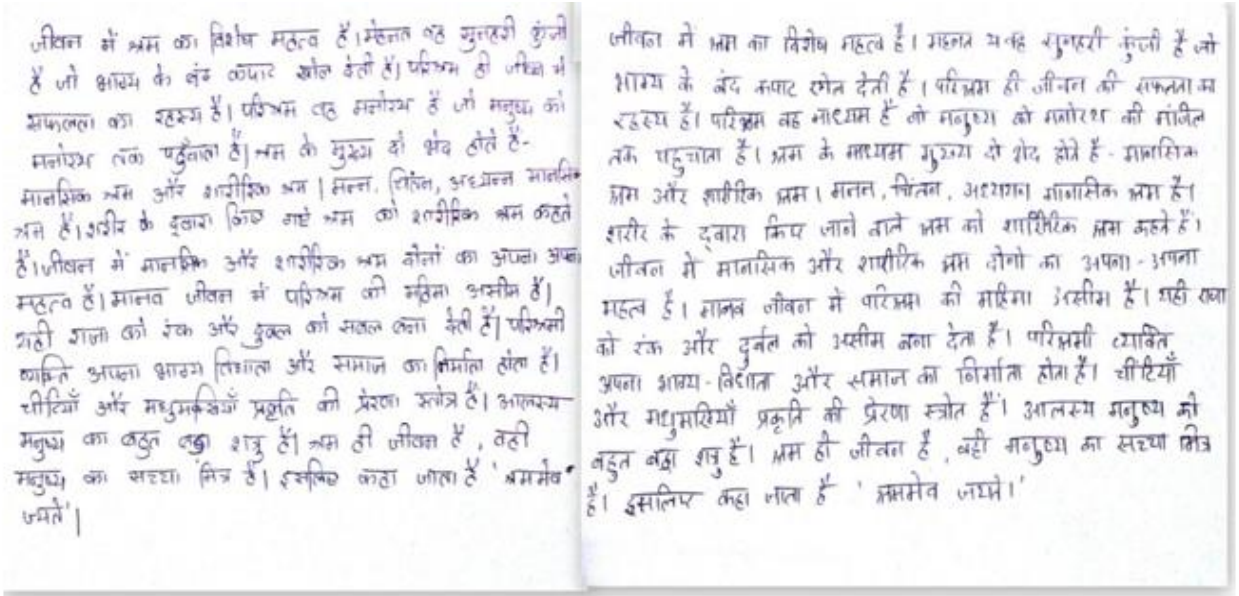 जीवन में श्रम का विशेष महत्व है। मेहनत वह सुनहरी कुंजी
है जो भाग्य के बंद कपाट खोल देती है। परिश्रम ही जीवन में
सफलता का रहस्य है। परिश्रम वह मनोरथ है जो मनुष्य को
मनोरथ तक पहुँचाता है। श्रम के मुख्य दो भेद होते है-
मानसिक श्रम और शारीरिक श्रम। मन्न, चिंतन, अध्यन्न मानसिक
श्रम है। शरीर के द्वारा किए गए श्रम को शारीरिक श्रम कहते
है। जीवन में मानसिक और शारीरिक श्रम दोनों का अपना अपना
महत्व है। मानव जीवन में परिश्रम की महिमा असीम है।
यही राजा को रंक और दुबल को सबल बना देती है। परिश्रमी
व्यक्ति अपना भाग्य विधाता और समाज का निर्माता होता है।
चीटियाँ और मधुमक्खियाँ प्रकृति की प्रेरणा स्त्रोत्र है। आलस्य
मनुष्य का बहुत बड़ा शत्रु है। श्रम ही जीवन है, वही
मनुष्य का सच्चा मित्र है। इसलिए कहा जाता है 'श्रममेव
जयते'।
जीवन में श्रम का विशेष महत्व है। महनत वह सुनहरी कुंजी है जो
भाग्य के बंद कपाट खोल देती है। परिश्रम ही जीवन की सफलता का
रहस्य है। परिश्रम वह माध्यम है जो मनुष्य को मनोरथ की मंजिल
तक पहुचाता है। श्रम के माध्यम मुख्य दो भेद होते है - मानसिक
श्रम और शारीरिक श्रम। मनन, चिंतन, अध्ययन मानसिक श्रम है।
शरीर के द्वारा किए जाने वाले श्रम को शारिरिक श्रम कहते हैं।
जीवन में मानसिक और शारीरिक श्रम दोनो का अपना - अपना
महत्व है। मानव जीवन में परिश्रम की महिमा असीम है। यही राजा
को रंक और दुर्बल को असीम बना देता है। परिश्रमी व्यक्ति
अपना भाग्य-विधाता और समाज का निर्माता होता है। चींटियाँ
और मधुमखियाँ प्रकृति की प्रेरणा स्त्रोत हैं। आलस्य मनुष्य को
बहुत बड़ा शत्रु है। श्रम ही जीवन है, वही मनुष्य का सच्चा मित्र
है। इसलिए कहा जाता है 'श्रममेव जयते।'